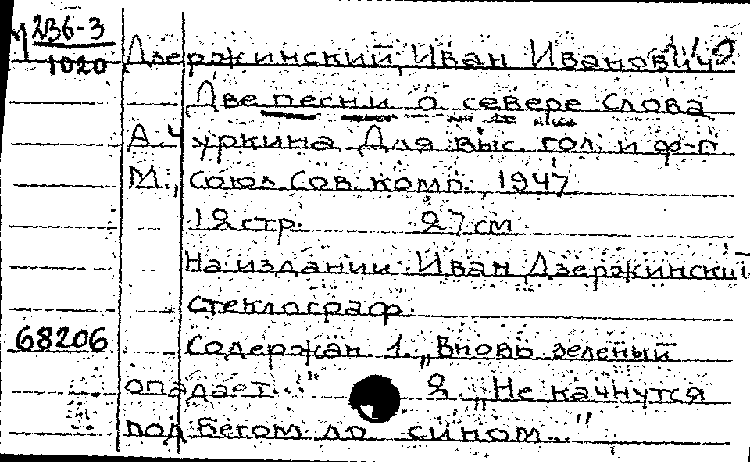 236-3
1020
Дзержинский, Иван Иванович
Две песни о севере Слова
А. Чуркина Для выс. гол. и ф-п
М., Союз Сов. комп. 1947
12 стр. 27 см
На издании: Иван Дзержинский
Стеклограф.
68206
Содержан 1. „Вновь зеленый
опадает..." 2. „Не качнутся
под бегом